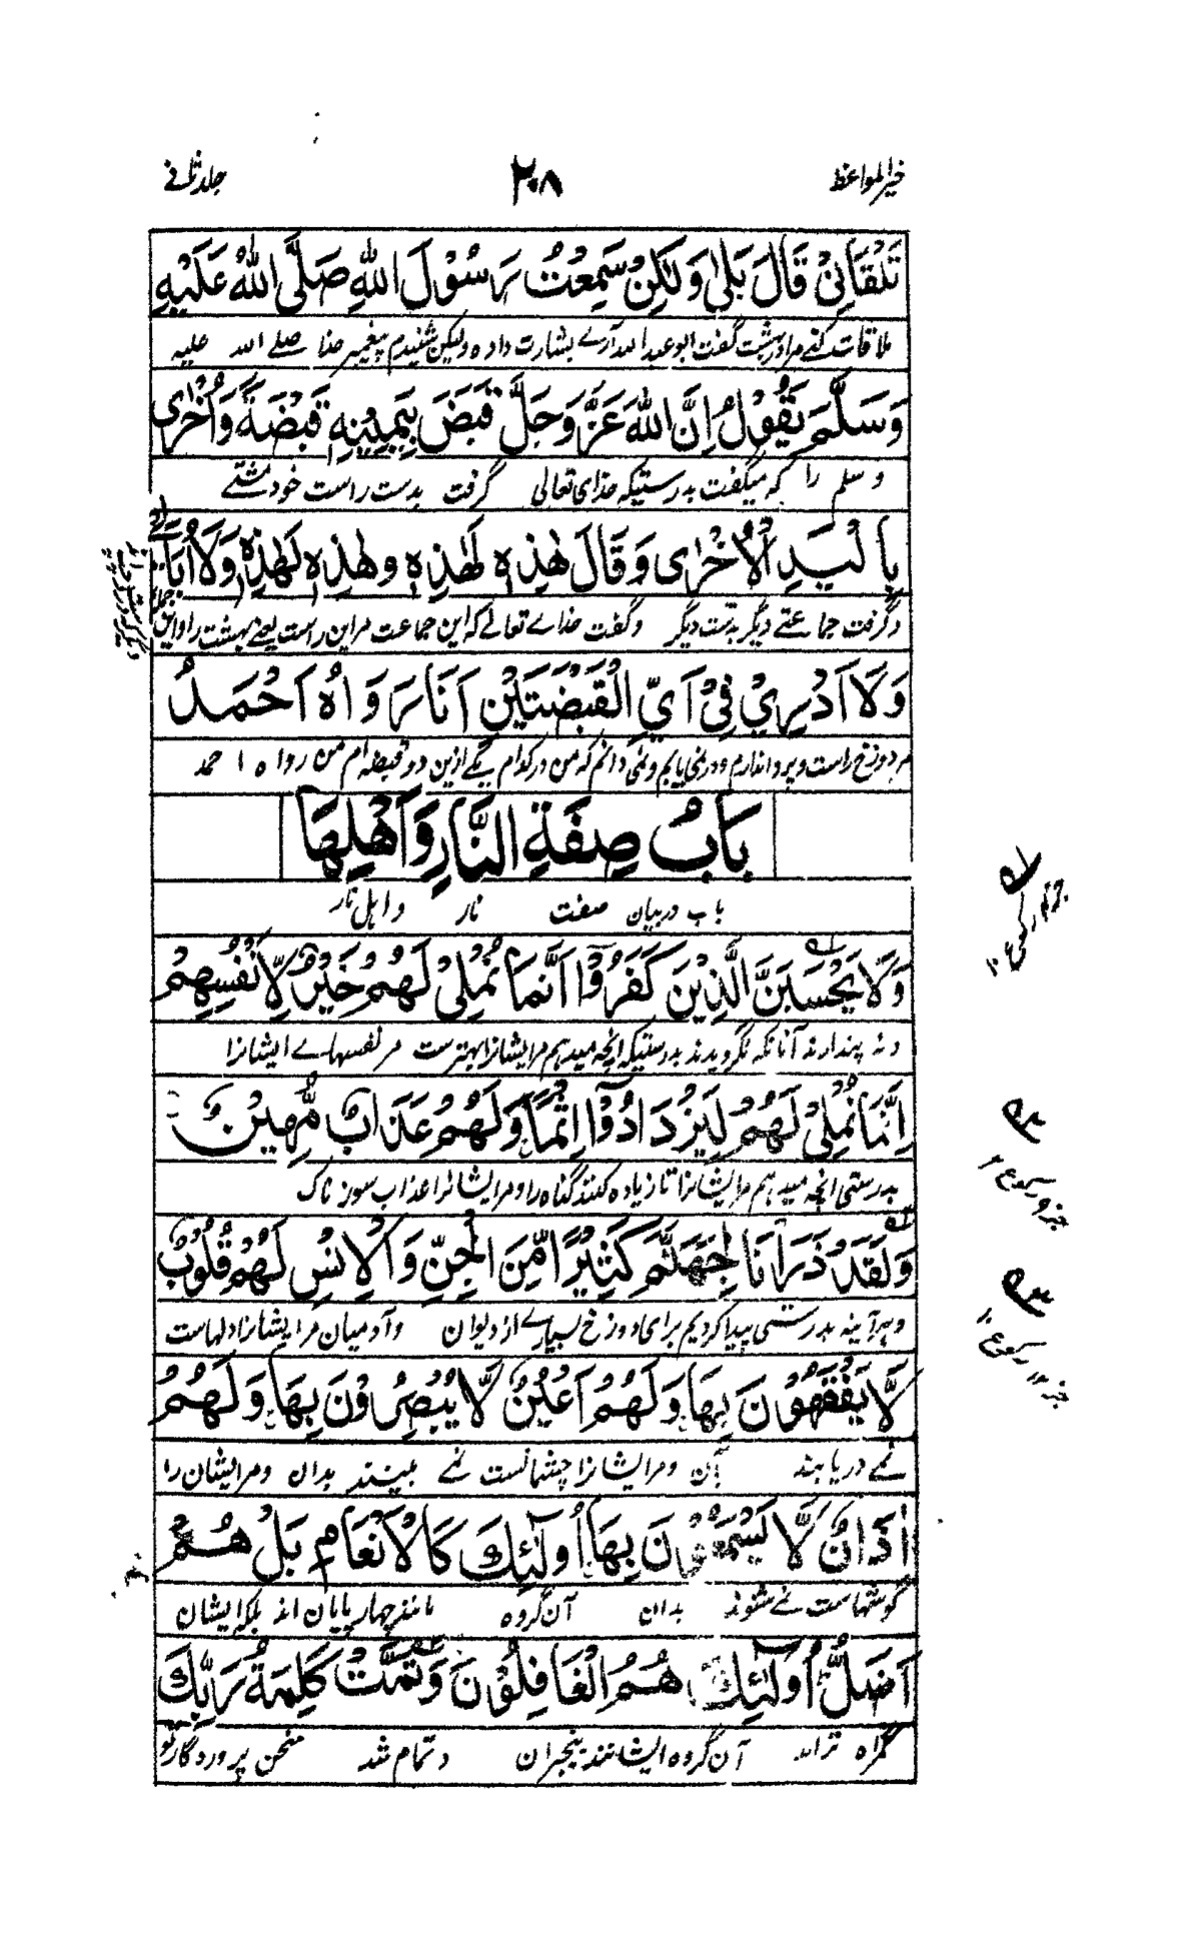 خیر المواعظ ۲۰۸ جلد ثانی
تَلْقَانِیْ قَالَ بَلٰی وَلٰکِنْ سَمِعْتُ رَسُوْلَ اللّٰهِ صَلَّی اللّٰهُ عَلَیْهِ
ملاقات کنی مرا در بهشت گفت ابو عبد الله آرے بشارت داده ولیکن شنیدم پیغمبر خدا صلے الله علیه
وَسَلَّمَ یَقُوْلُ اِنَّ اللّٰهَ عَزَّ وَجَلَّ قَبَضَ بِیَمِیْنِهٖ قَبْضَةً وَاُخْرٰی
و سلم را که میگفت بدرستیکه خدای تعالی گرفت بدست راست خود مشتے
بِالْیَدِ الْاُخْرٰی وَقَالَ هٰذِهٖ لِهٰذِهٖ وهٰذِهٖ لِهٰذِهٖ وَلَا اُبَالِیْ
و گرفت جماعتے دیگر بدست دیگر وگفت خداے تعالے که این جماعت مر این راست یعنے بهشت را و این
وَلَا اَدْرِیْ فِیْ اَیِّ الْقَبْضَتَیْنِ اَنَا رَوَاهُ اَحْمَدُ
مر دوزخ راست و پروا ندارم و در نمی یابم ونمی دانم که من در کدام یکے ازین دو قبضه ام من رواه احمد
بَابُ صِفَةِ النَّارِ وَاَهْلِهَا
باب دربیان صفت نار و اهل نار
وَلَا یَحْسَبَنَّ الَّذِیْنَ کَفَرُوْٓا اَنَّمَا نُمْلِیْ لَهُمْ خَیْرٌ لِّاَنْفُسِهِمْ
و نه پندارند آنانکه نگرویدند بدرستیکه انچه میدهم مر ایشانرا بهترست مر نفسهاے ایشانرا
اِنَّمَا نُمْلِیْ لَهُمْ لِیَزْدَادُوْٓا اِثْمًا وَلَهُمْ عَذَابٌ مُّهِیْنٌ
بدرستی انچه میدهم مر ایشانرا تا زیاده کنند گناه را و مر ایشانرا عذاب سوزناک
وَلَقَدْ ذَرَاْنَا لِجَهَنَّمَ کَثِیْرًا مِّنَ الْجِنِّ وَالْاِنْسِ لَهُمْ قُلُوْبٌ
و هر آینه بدرستی پیدا کردیم برای دوزخ بسیارے از دیوان و آدمیان مر ایشانرا دلهاست
لَّا یَفْقَهُوْنَ بِهَا وَلَهُمْ اَعْیُنٌ لَّا یُبْصِرُوْنَ بِهَا وَلَهُمْ
نمے دریابند بآن و مر ایشانرا چشمانست نمے بینند بدان و مر ایشان را
اٰذَانٌ لَّا یَسْمَعُوْنَ بِهَا اُولٰٓئِکَ کَالْاَنْعَامِ بَلْ هُمْ
گوشهاست نمے شنوند بدان آن گروه مانند چهار پایان اند بلکه ایشان
اَضَلُّ اُولٰٓئِکَ هُمُ الْغَافِلُوْنَ وَتَمَّتْ کَلِمَةُ رَبِّکَ
گمراه تراند آن گروه ایشانند بیخبران و تمام شد سخن پروردگار تو